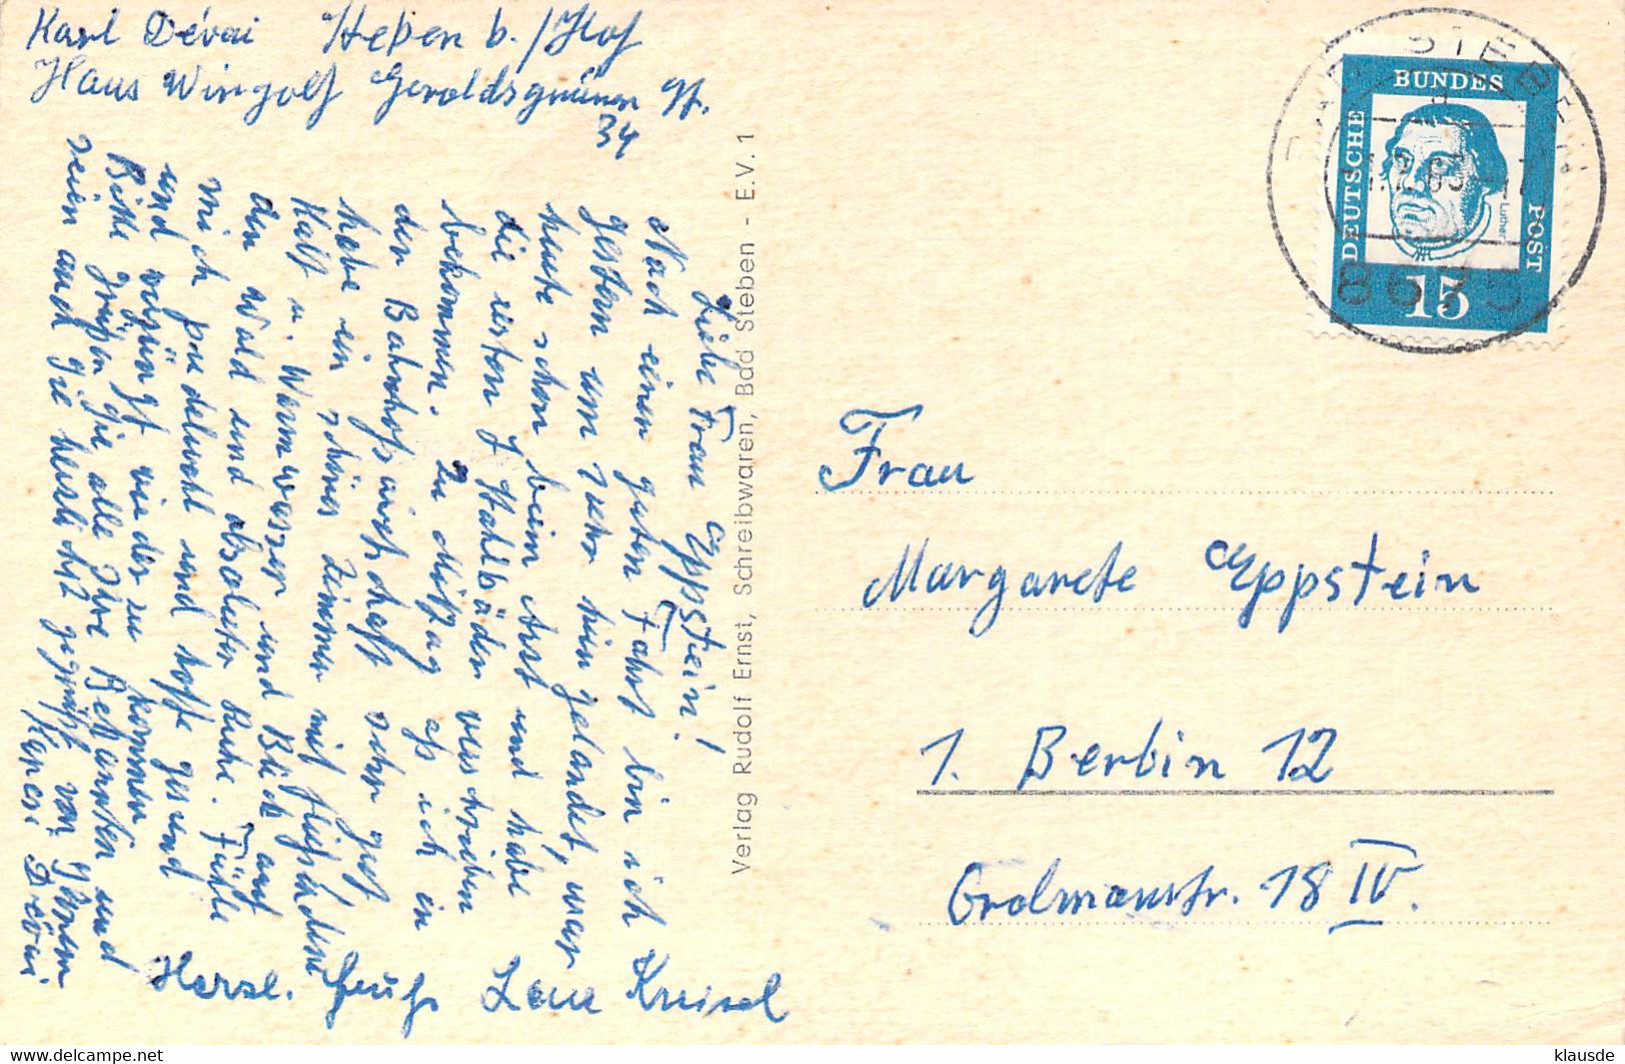 Karl Dévai Steben b./Hof
Haus Wingolf Geroldsgrüner
34
Liebe Frau Eppstein!
Nach einer guten Fahrt bin ich
gestern um Uhr hier gelandet, war
heute schon beim Arzt und habe
die ersten 7 Stahlbäder verschrieben
bekommen. Zu Mittag aß ich in
der Bahnhofswirtschaft sehr gut
habe ein schönes Zimmer mit fließendem
Kalt u. Warmwasser und Blick auf
den Wald und absoluter Ruhe. Fühle
mich pudelwohl und hoffe gesund
und verjüngt wieder zu kommen
Bitte grüßen Sie alle Ihre Bekannten und
seien auch Sie herzlichst gegrüßt von Ihrem
Karl Dévai.
Herzl. Gruß Lene Kreisel
Verlag Rudolf Ernst, Schreibwaren, Bad Steben - E.V. 1
STEBEN
8675
DEUTSCHE
BUNDES
POST
Luther
15
Frau
Margarete Eppstein
1. Berlin 12
Grolmanstr. 18 IV.
klausde
www.delcampe.net